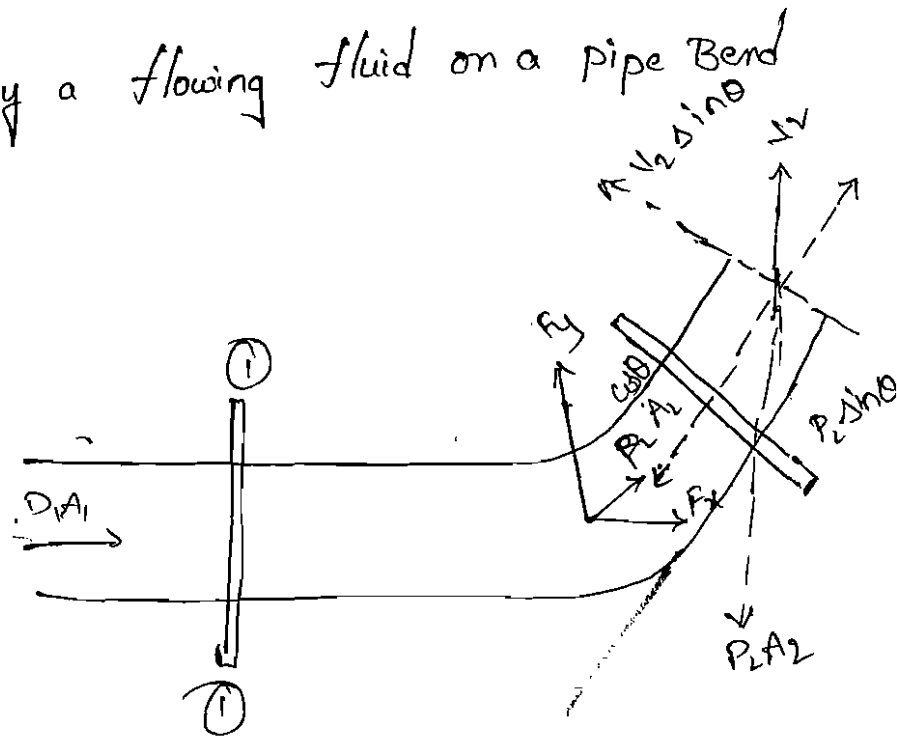 y a flowing fluid on a pipe Bend
V₂ sinθ
V₂
①
Fy
cosθ
P₂A₂
P₂ sinθ
D₁A₁
Fx
P₂A₂
①